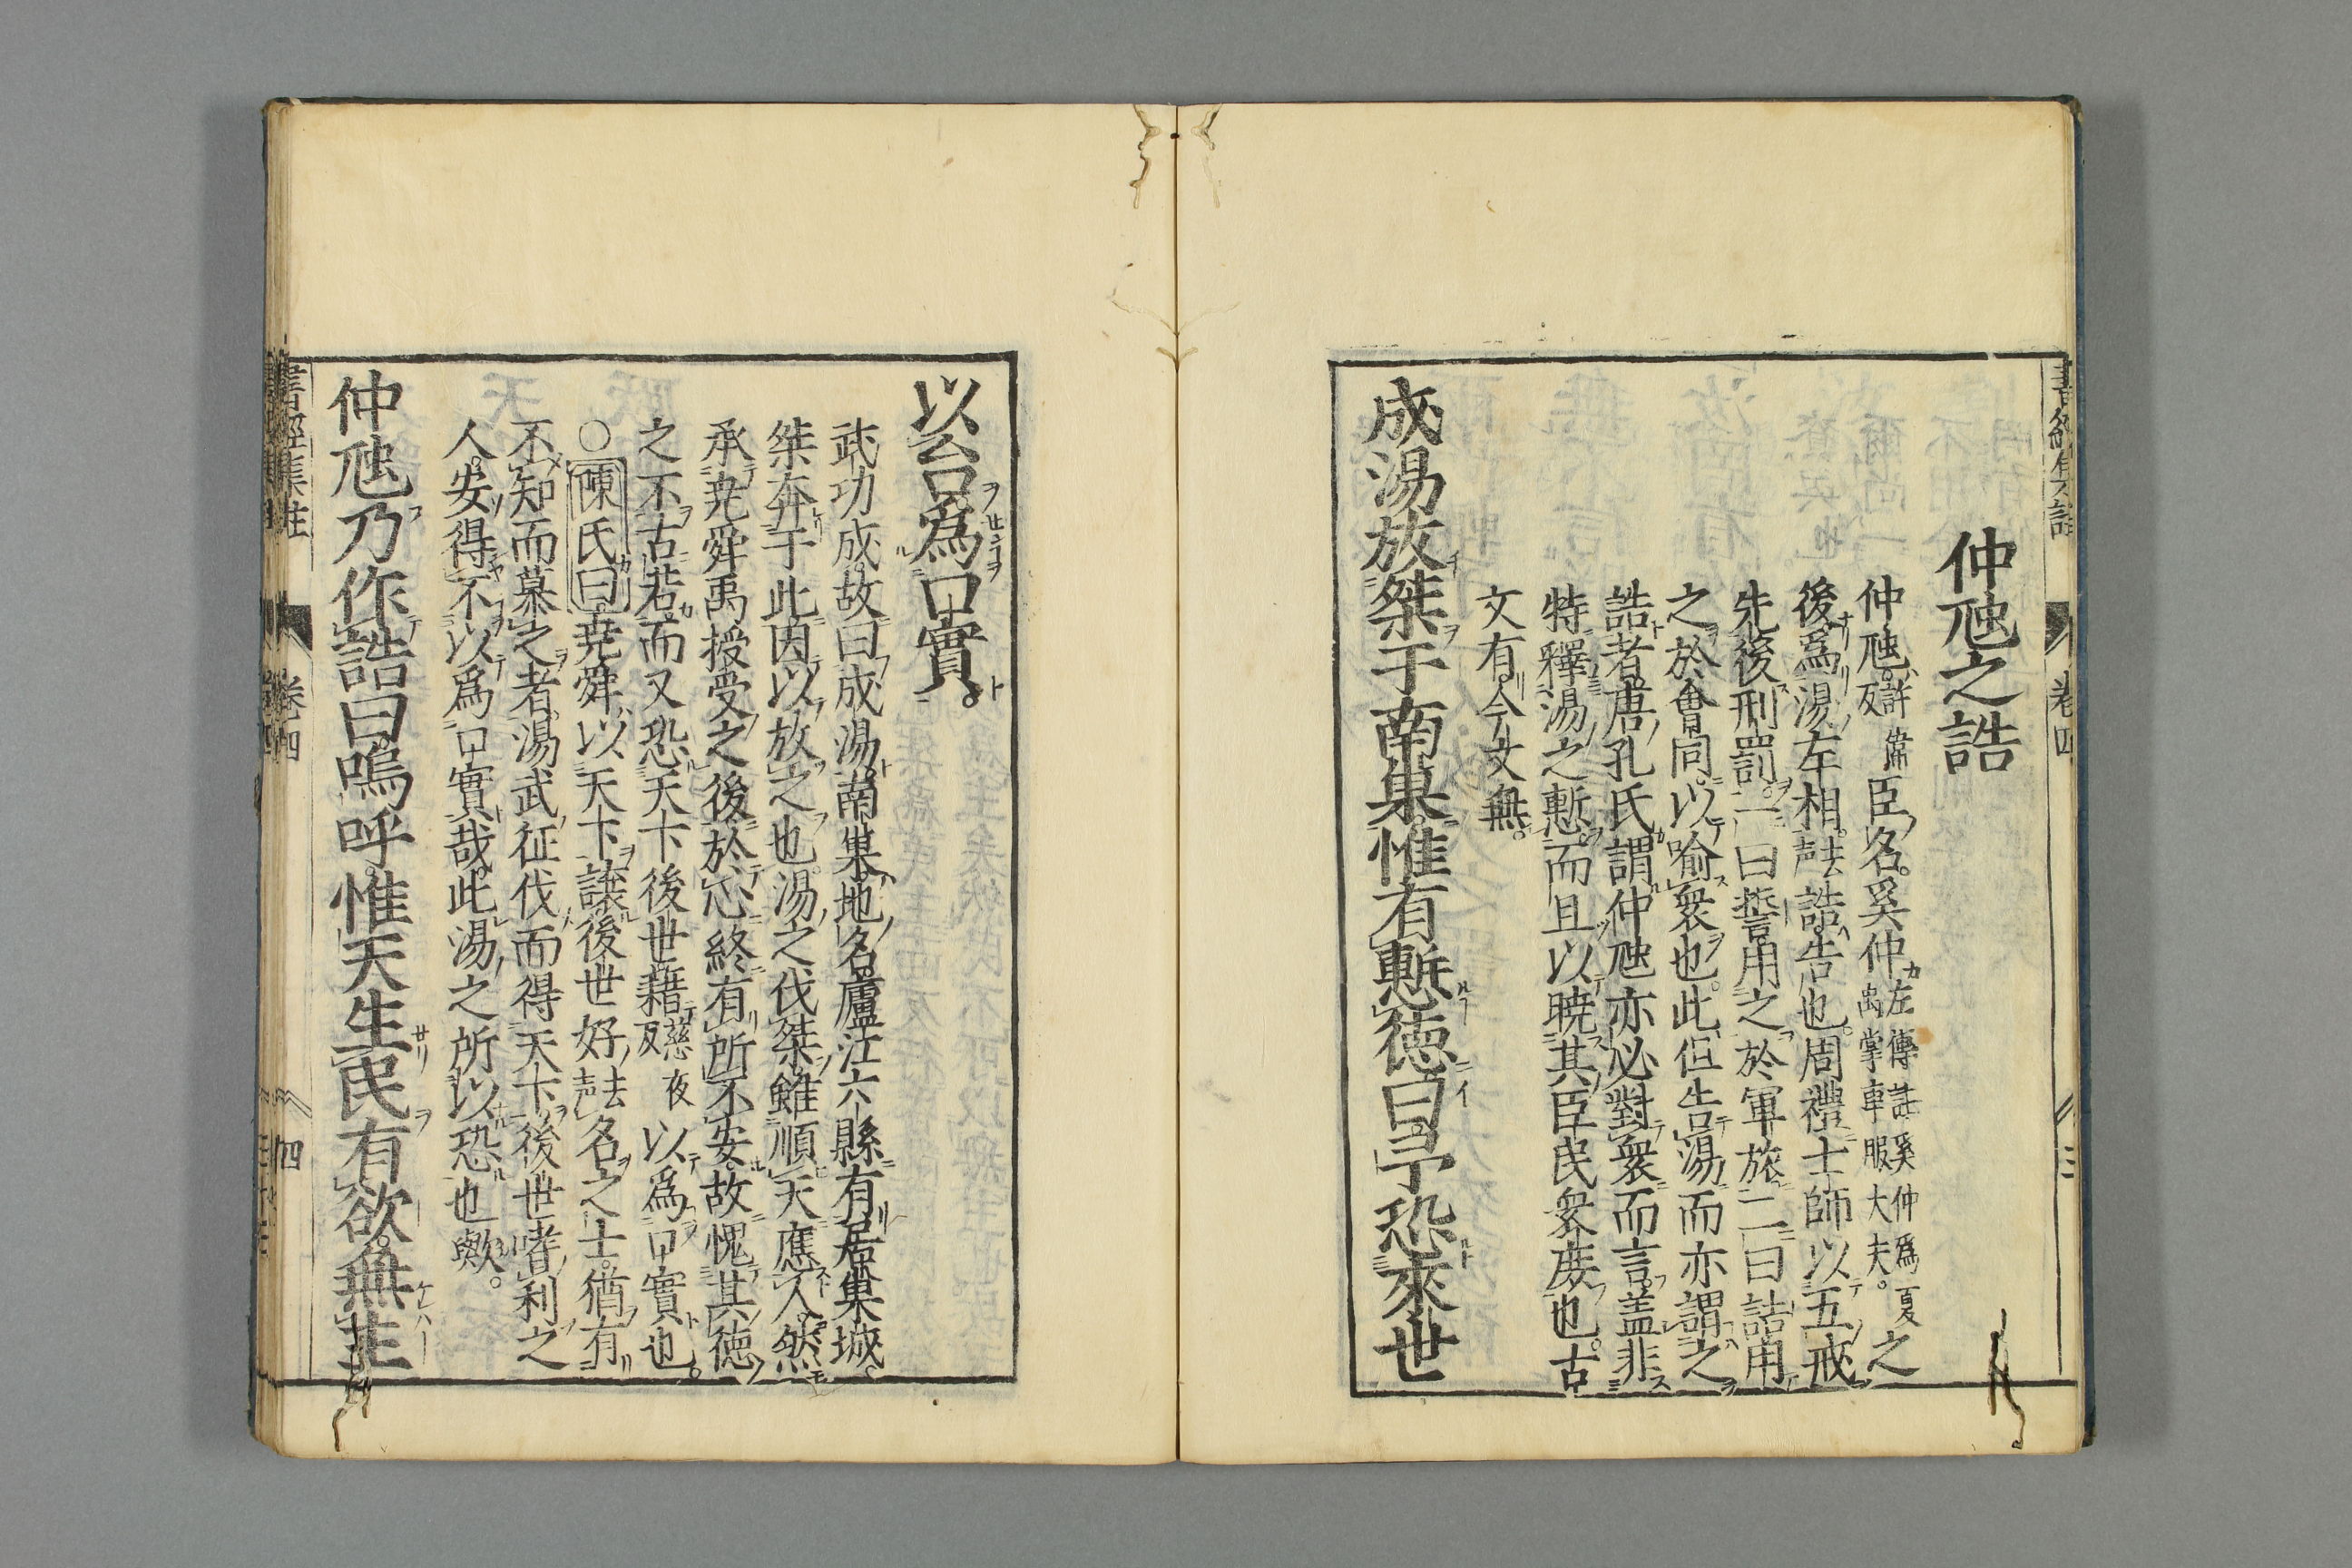 仲虺之誥
仲虺許偉反臣名奚仲左傳註奚仲爲夏出掌車服大夫。之
後爲湯左相去声誥告也周禮士師以五戒
先後刑罰一曰誓用之於軍旅二曰誥用
之於會同以喻衆也此但告湯而亦謂之
誥者唐孔氏謂仲虺亦必對衆而言盖非
特釋湯之慙而且以曉其臣民衆庶也古
文有今文無。
成湯放桀于南巢惟有慙德曰予恐來世
以台爲口實。
武功成故曰成湯南巢地名廬江六縣有居巢城。
桀奔于此因以放之也湯之伐桀雖順天應人然
承堯舜禹授受之後於心終有所不安故愧其德
之不古若而又恐天下後世藉慈夜反以爲口實也。
○陳氏曰堯舜以天下讓後世好去声名之士猶有
不知而慕之者湯武征伐而得天下後世嗜利之
人安得不以爲口實哉此湯之所以恐也歟。
仲虺乃作誥曰嗚呼惟天生民有欲無主
書經集註 卷四 四